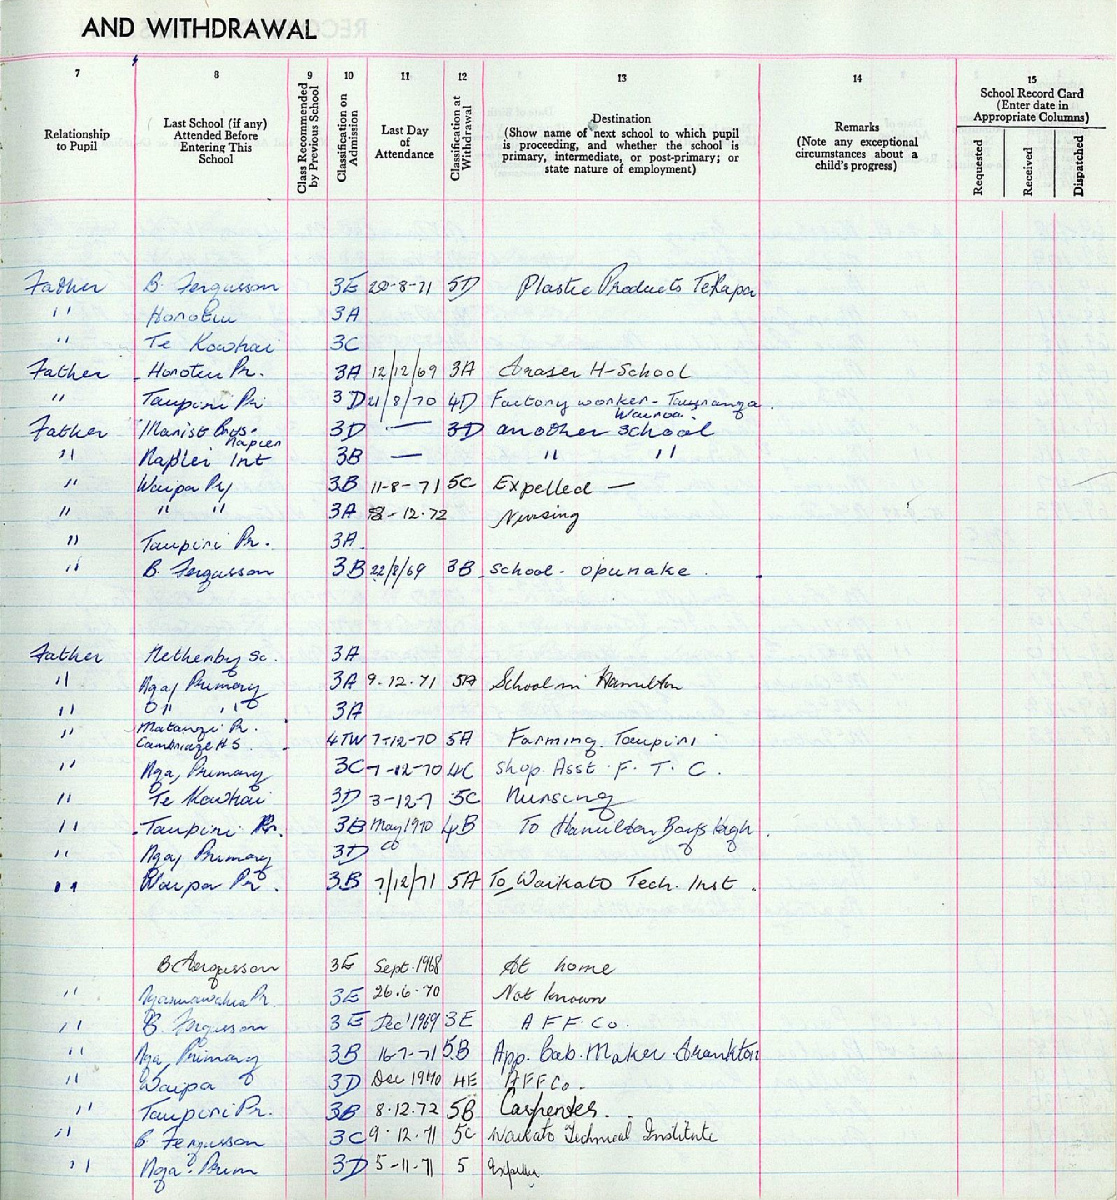 AND WITHDRAWAL
7 8 9 10 11 12 13 14 15
Relationship to Pupil
Last School (if any) Attended Before Entering This School
Class Recommended by Previous School
Classification on Admission
Last Day of Attendance
Classification at Withdrawal
Destination (Show name of next school to which pupil is proceeding, and whether the school is primary, intermediate, or post-primary; or state nature of employment)
Remarks (Note any exceptional circumstances about a child's progress)
School Record Card (Enter date in Appropriate Columns)
Requested Received Dispatched
Father B. Fergusson 3E 20-8-71 5D Plastic Products TeRapa
" Horotiu 3A
" Te Kowhai 3C
Father Horotiu Pr. 3A 12/12/69 3A Fraser H-School
" Taupiri Pr 3D 21/8/70 4D Factory worker - Tauranga
Wairoa
Father Marist Bros. Napier 3D — 3D another school
" Napier Int 3B — " "
" Waipa Pr 3B 11-8-71 5C Expelled —
" " " 3A 8-12-72 Nursing
" Taupiri Pr. 3A
" B. Fergusson 3B 22/8/69 3B School - Opunake.
Father Methenby Sc. 3A
" Nga, Primary 3A 9.12.71 5A School in Hamilton
" " " 3A
Matangi Pr.
" Cambridge H S. 4TW 7-12-70 5A Farming. Taupiri
" Nga, Primary 3C 7-12-70 4C Shop Asst. F. T. C.
" Te Kowhai 3D 3-12-7 5C Nursing
" Taupiri Pr. 3B May 1970 4B To Hamilton Boys High.
" Nga, Primary 3D
" Waipa Pr. 3B 7/12/71 5A To Waikato Tech. Inst.
B Fergusson 3E Sept. 1968 At home
" Ngaruawahia Pr. 3E 26.6.70 Not known
" B. Fergusson 3E Dec' 1969 3E A F F Co.
" Nga, Primary 3B 16-7-71 5B App. Cab. Maker. Frankton
" Waipa 3D Dec 1970 4E AFFCo.
" Taupiri Pr. 3B 8.12.72 5B Carpenter.
" B Fergusson 3C 9.12.71 5C Waikato Technical Institute
" Nga. Prim 3D 5-11-71 5